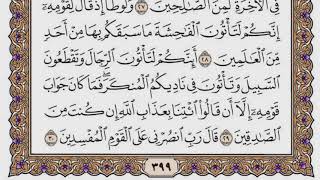 فِي ٱلْأَخِرَةِ لَمِنَ ٱلصَّٰلِحِينَ ٢٧ وَلُوطًا إِذْ قَالَ لِقَوْمِهِۦٓ
إِنَّكُمْ لَتَأْتُونَ ٱلْفَٰحِشَةَ مَا سَبَقَكُم بِهَا مِنْ أَحَدٍ
مِّنَ ٱلْعَٰلَمِينَ ٢٨ أَئِنَّكُمْ لَتَأْتُونَ ٱلرِّجَالَ وَتَقْطَعُونَ
ٱلسَّبِيلَ وَتَأْتُونَ فِي نَادِيكُمُ ٱلْمُنكَرَ فَمَا كَانَ جَوَابَ
قَوْمِهِۦٓ إِلَّآ أَن قَالُوا۟ ٱئْتِنَا بِعَذَابِ ٱللَّهِ إِن كُنتَ مِنَ
ٱلصَّٰدِقِينَ ٢٩ قَالَ رَبِّ ٱنصُرْنِي عَلَى ٱلْقَوْمِ ٱلْمُفْسِدِينَ ٣٠
٣٩٩